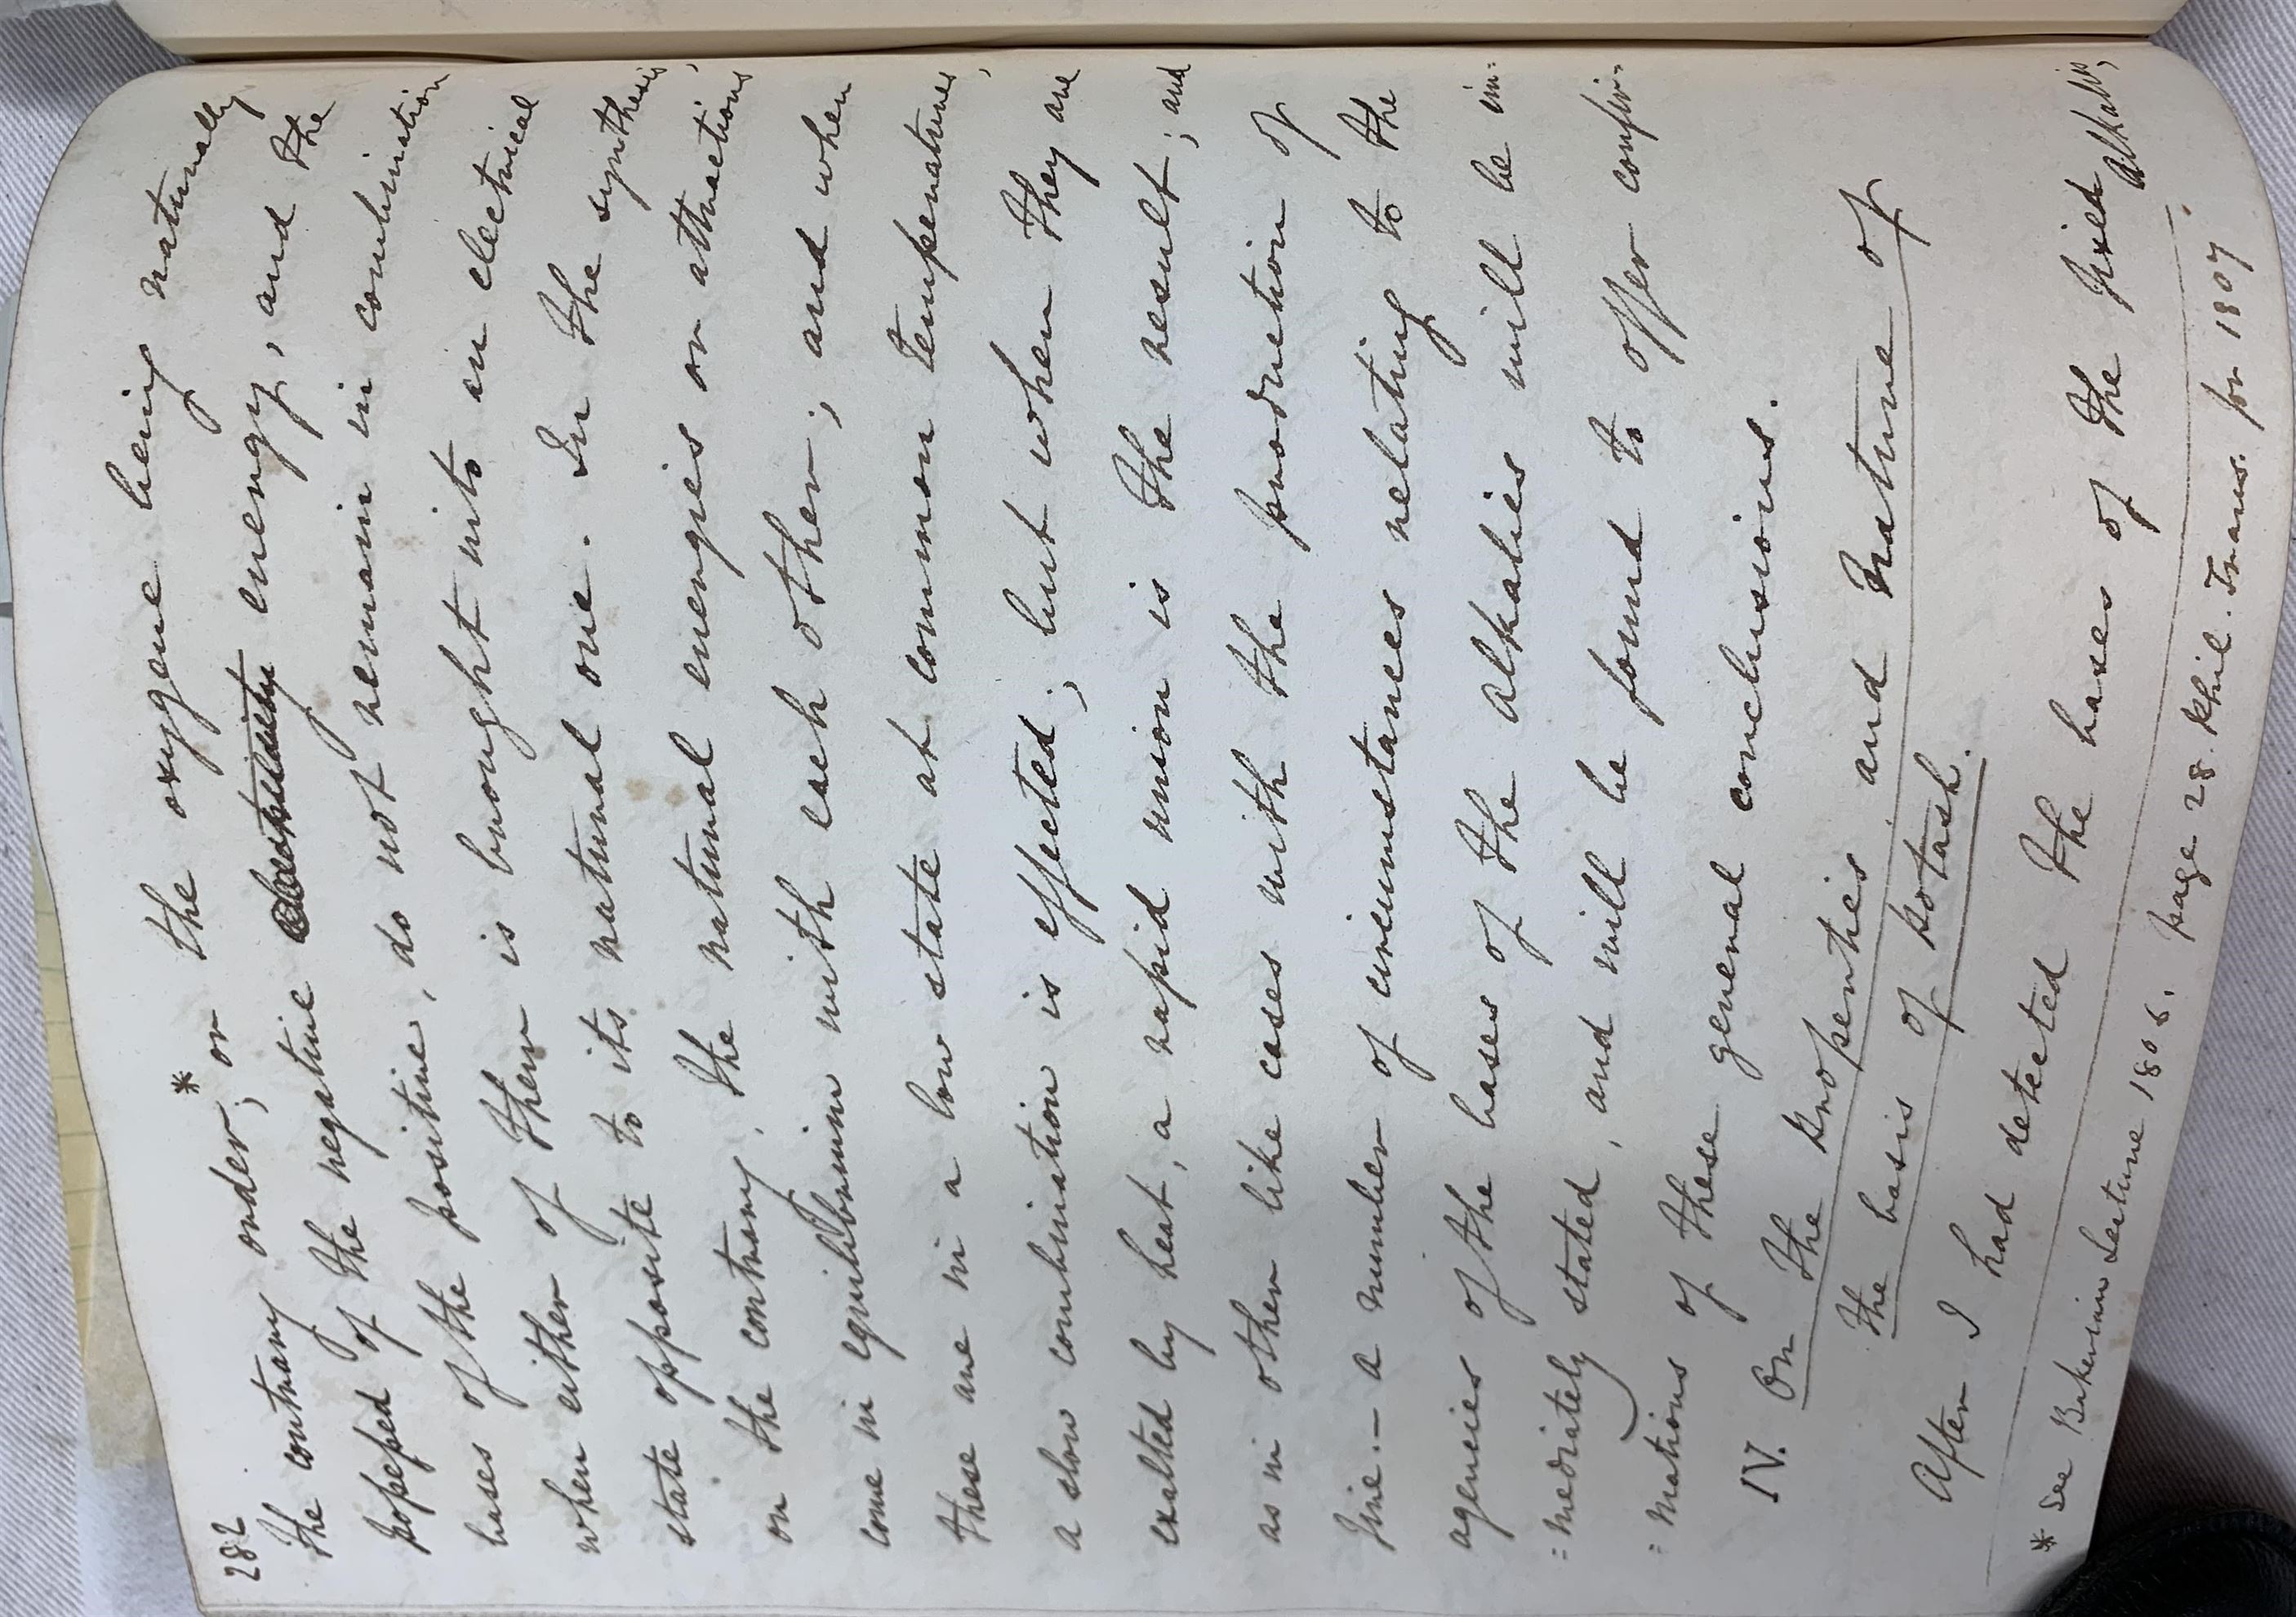 282
the contrary order;* or the oxygene being naturally
possessed of the negative energy, and the
bases of the positive, do not remain in combination
when either of them is brought into an electrical
state opposite to its natural one. In the synthesis,
on the contrary, the natural energies or attractions
come in equilibrium with each other; and when
these are in a low state at common temperatures,
a slow combination is effected; but when they are
exalted by heat, a rapid union is the result; and
as in other like cases with the production of
fire. — a number of circumstances relating to the
agencies of the bases of the alkalies will be im=
=mediately stated, and will be found to offer confir=
=mations of these general conclusions.
IV. On the properties and nature of
the basis of potash.
After I had detected the bases of the fixed alkalis,
* See Bakerian Lecture 1806. page 28. Phil. Trans. for 1807.